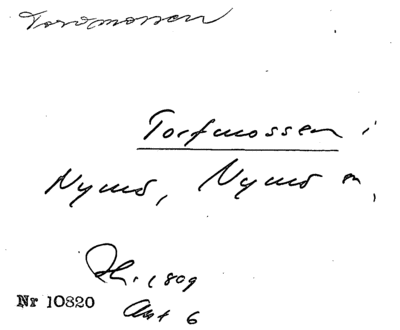 Torvmossen
Torfmossen i
Nymö, Nymö sn,
Sk. 1809
Nr 10820
Akt 6